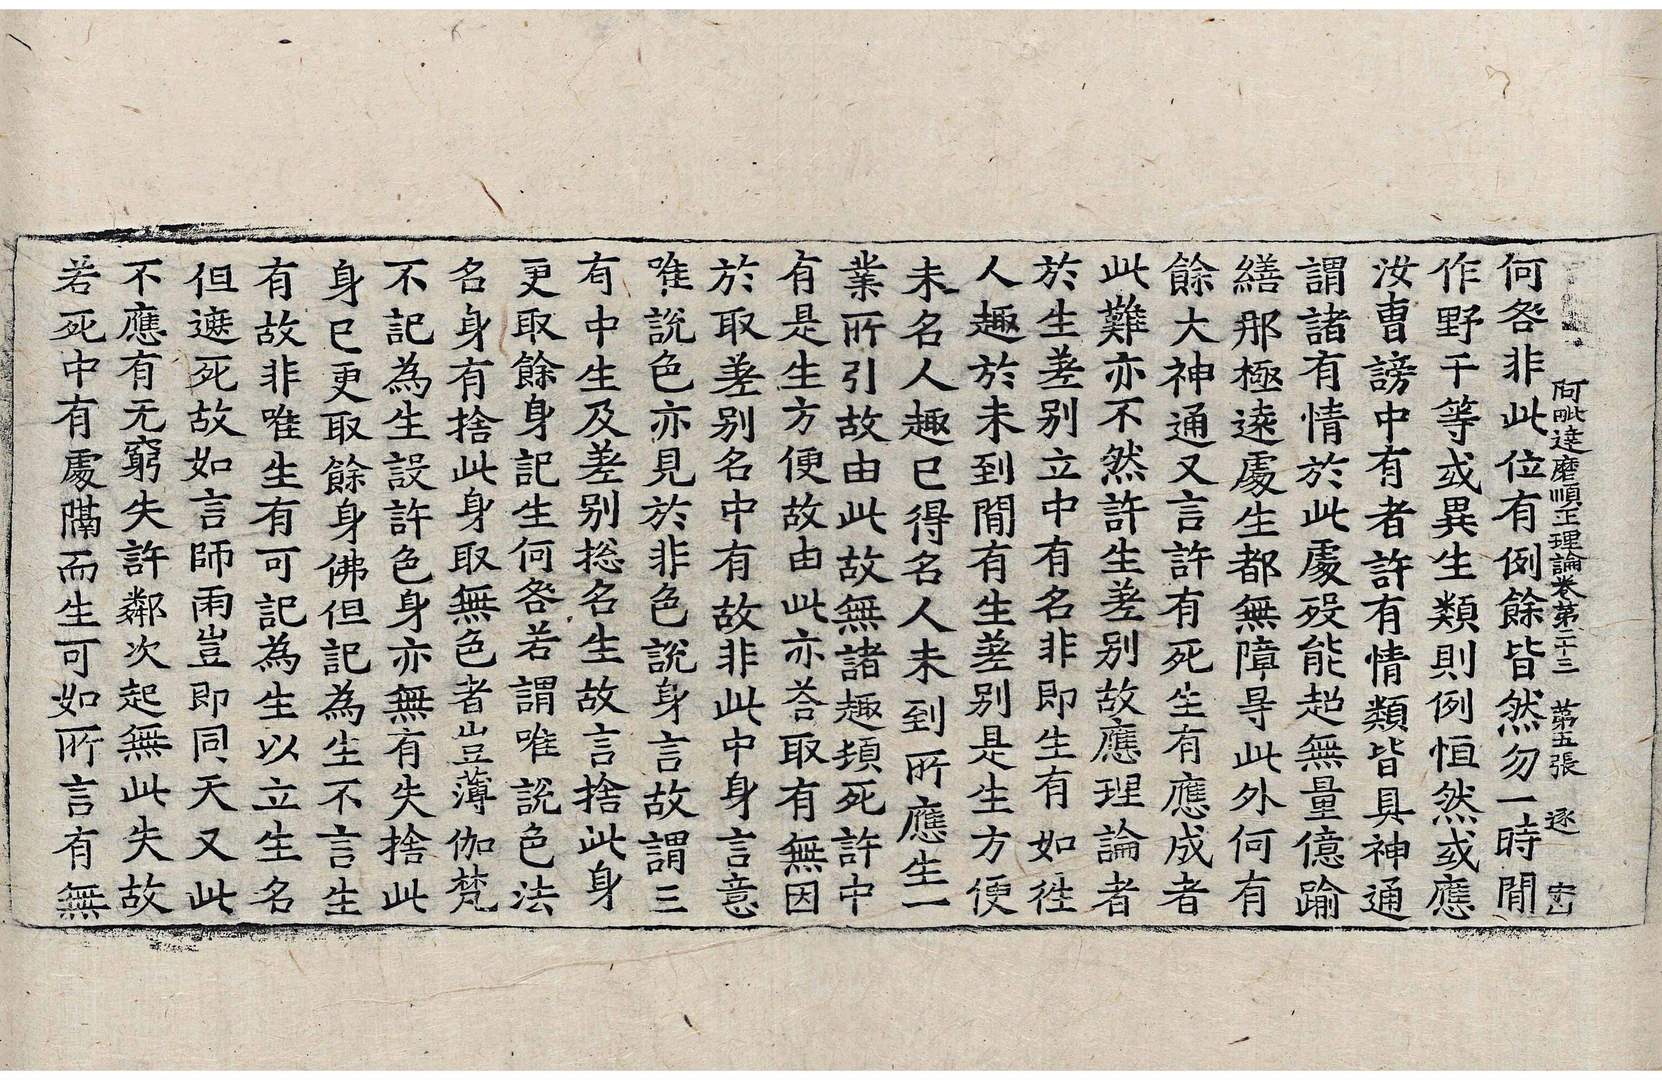 阿毗達磨順正理論卷第二十三 第五張 逐
何咎非此位有例餘皆然勿一時閒
作野干等或異生類則例恒然或應
汝曹謗中有者許有情類皆具神通
謂諸有情於此處歿能超無量億踰
繕那極遠處生都無障㝵此外何有
餘大神通又言許有死生有應成者
此難亦不然許生差别故應理論者
於生差别立中有名非即生有如徃
人趣於未到閒有生差别是生方便
未名人趣已得名人未到所應生一
業所引故由此故無諸趣頻死許中
有是生方便故由此亦荅取有無因
於取差别名中有故非此中身言意
唯說色亦見於非色說身言故謂三
有中生及差别揔名生故言捨此身
更取餘身記生何咎若謂唯說色法
名身有捨此身取無色者豈薄伽梵
不記為生設許色身亦無有失捨此
身已更取餘身佛但記為生不言生
有故非唯生有可記為生以立生名
但遮死故如言師雨豈即同天又此
不應有无窮失許鄰次起無此失故
若死中有處隔而生可如所言有無